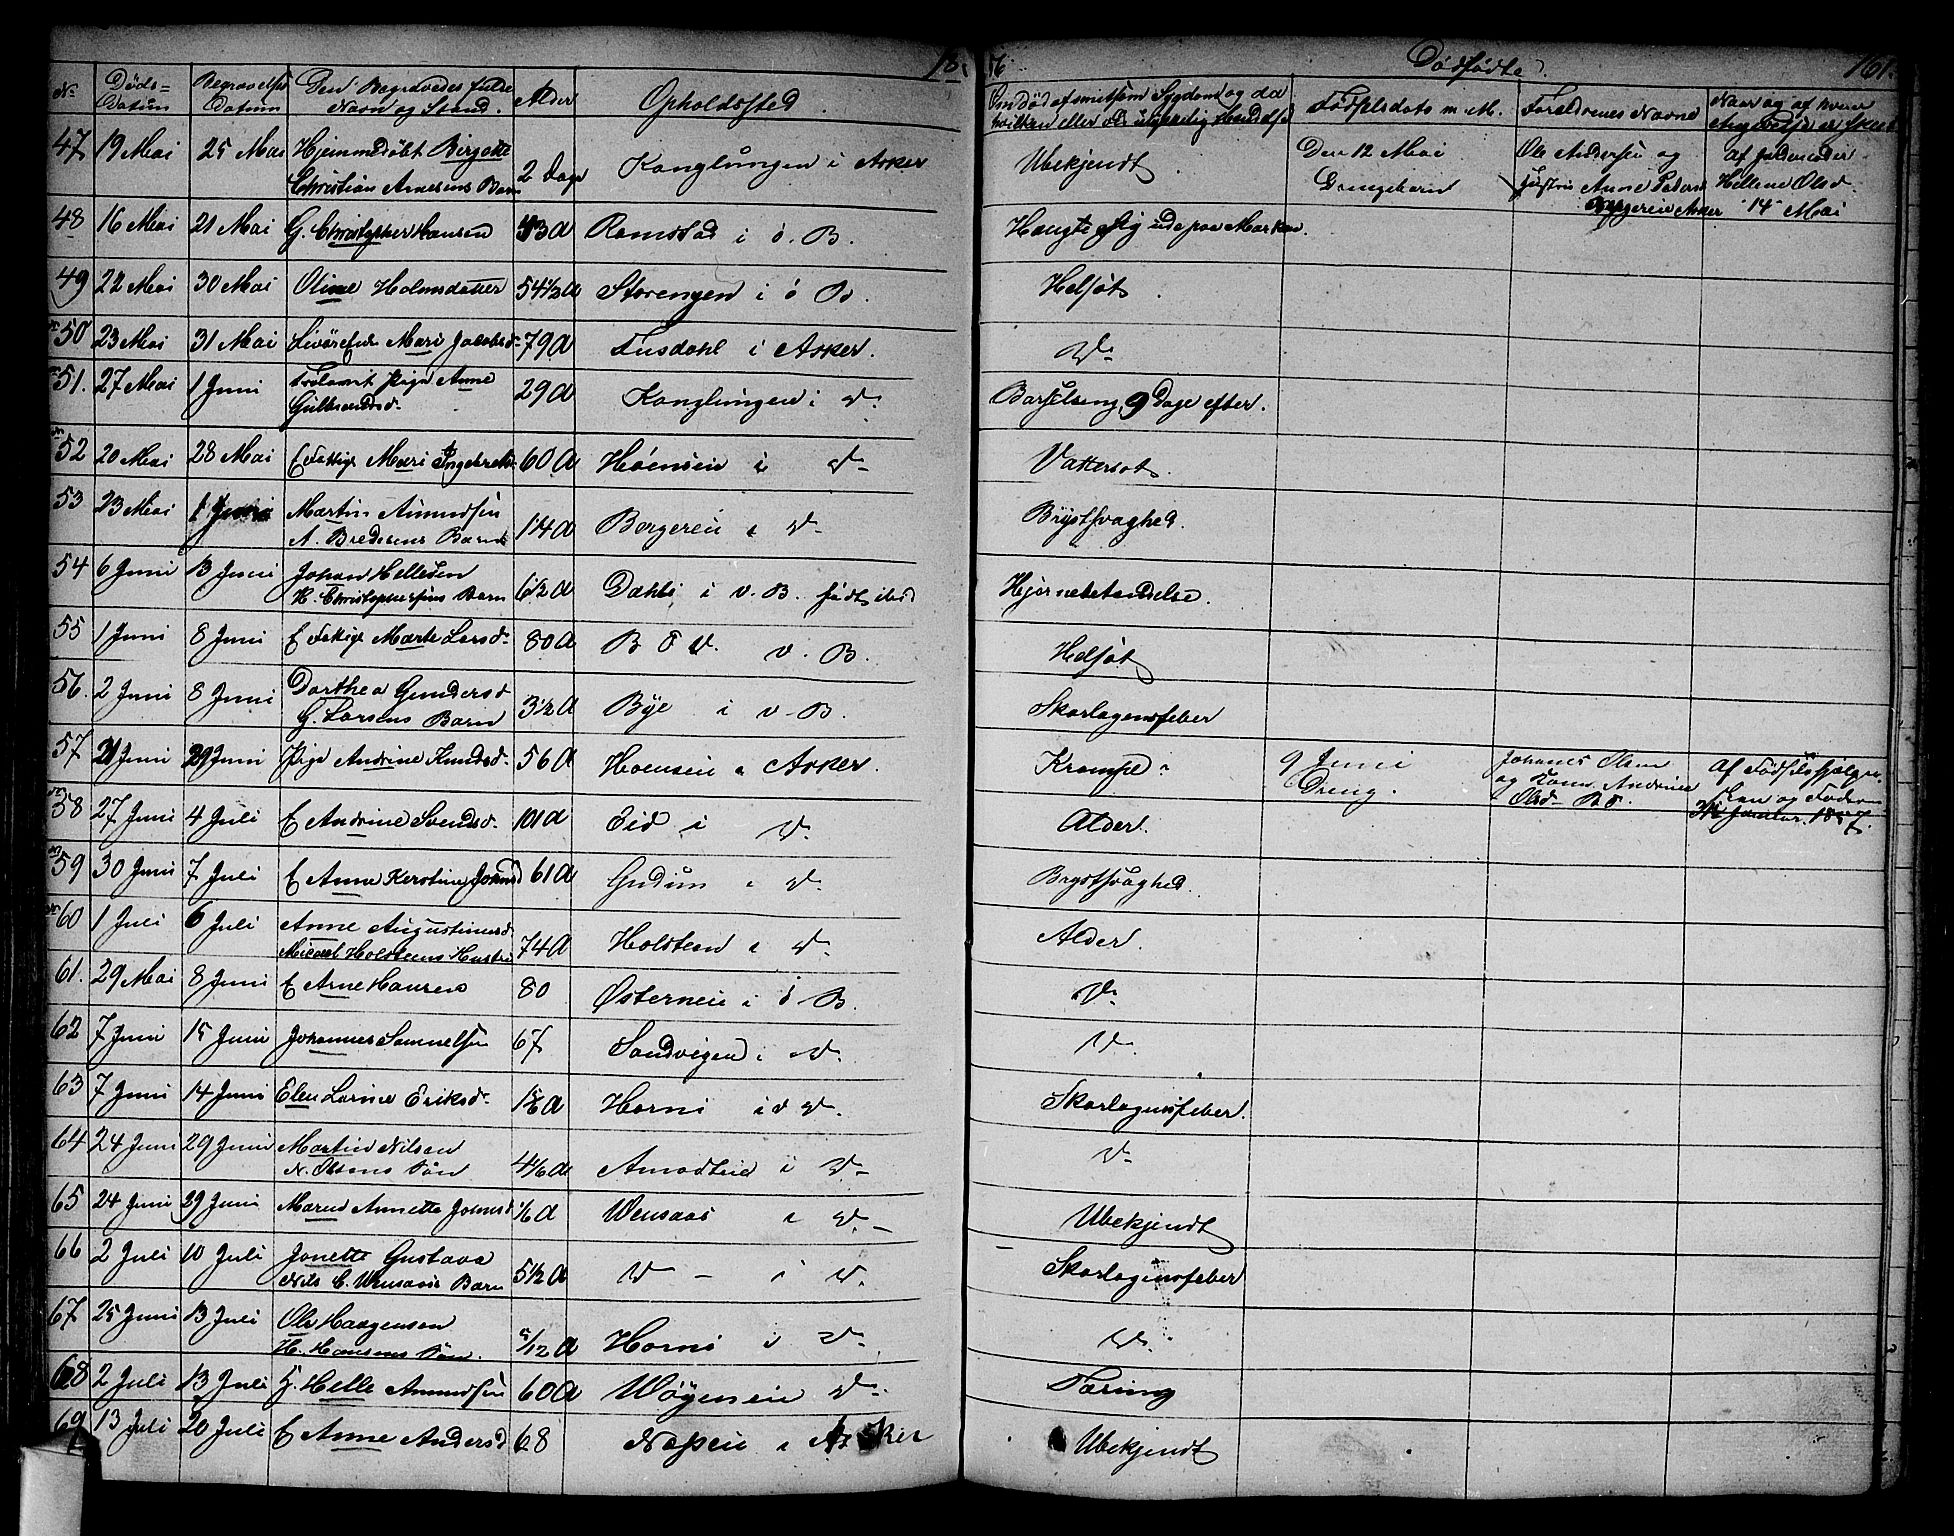 18 56 Dødfødte. 161.
No Døds-Datum Begravelses Datum Den Begravedes fulde Navn og Stand. Alder Opholdssted. Om død af smitsom Sygdom og da hvilken eller ved ulykkelig Hændelse Fødselsdato m. M. Forældrenes Navne Naar og af hvem Angivelse er skeet
47 19 Mai 25 Mai Hjemmedøbt Birgitte 2 Dage Konglungen i Asker Ubekjendt Den 12 Mai Ole Andersen og af Jordemoder
Christian Arnesens Barn Drengebarn Anne Peders Hellene Olsd.
Asker 14 Mai
48 16 Mai 21 Mai G. Christopher Hansen 43 A Ramstad i ø. B. Hængte sig ude paa Marken.
49 22 Mai 30 Mai Oline Holmsdatter 54 1/2 A Storengen i ø B. Helsot
50 23 Mai 31 Mai Mari Jacobsd. 79 A Fusdahl i Asker. D.
51. 27 Mai 1 Juni Pige Anne 29 A Konglungen i D. Barselseng, 9 Dage efter.
Gulbrandsd.
52 20 Mai 28 Mai E Fattige Mari Ingebretsd 60 A Høensen i D. Vattersot
53 23 Mai 1 Juni Martin Amundsen 1 1/4 A Borgereie i D. Brystsvaghed.
A. Bredesens Barn
54 6 Juni 13 Juni Johan Hellesen 6 1/2 A Dahl i v. B. født ibid Hjernebetændelse.
H. Christophersens Barn
55 1 Juni 8 Juni E Fattige Marte Larsd. 80 A v. B. Helsot
56. 2 Juni 8 Juni Dorthea Gundersd 3 1/2 A Bye i v. B. Skarlagensfeber
G. Larsens Barn
57 21 Juni 29 Juni Pige Andrine Knudsd. 56 A Hoensen i Asker. Krampe 9 Juni Johannes Olsen Af Fødselshjælper
Dreng. og Kone Andrine og Faderen
Olsd. Januar. 1857.
58 27 Juni 4 Juli E Andrine Svendsd. 101 A Eid i D. Alder.
59 30 Juni 7 Juli E Anne Kerstine Johnsd 61 A Gudum i D. Brystsvaghed.
60 1 Juli 6 Juli Anne Augustinusd 74 A Holsteen i D. Alder.
Micael Holsteens Hustru
61. 29 Mai 8 Juni E Arne Hansen 80 Østerneie i ø B. D.
62 7 Juni 15 Juni Johannes Samuelsen 67 Sandvigen i D. D.
63 7 Juni 14 Juni Elen Larine Eriksd. A Horni i D. Skarlagensfeber.
64 24 Juni 29 Juni Martin Nilsen 4 1/6 A i D. D.
N. Olsens Søn
65 24 Juni 29 Juni Maren Annette Johnsd 1/6 A Wensaas i D. Ubekjendt
66 2 Juli 10 Juli Jonette Gustava 5 1/2 A D - i D. Skarlagensfeber
Nils C. Wensaas Barn
67 25 Juni 13 Juli Ole Haagensen 5/12 A Horni i D. D.
H. Hansens Søn.
68 2 Juli 13 Juli G. Helle Amundsen 60 A Wøyeneie D. Tæring
69 13 Juli 20 Juli E Anne Andersd 68 Næseie i Asker Ubekjendt